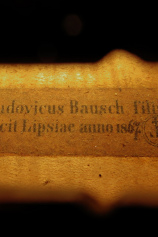 udovicus Bausch fili
cit Lipsiae anno 1867